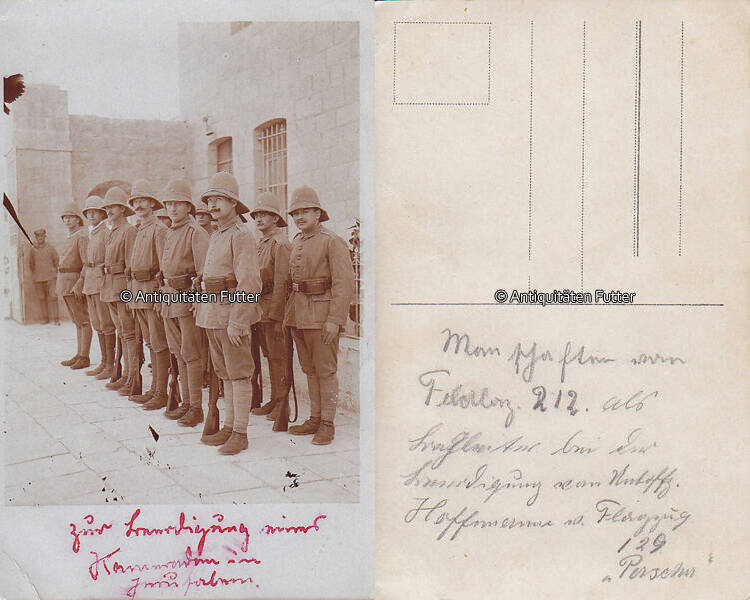 © Antiquitäten Futter
zur Beerdigung eines
Kameraden in
Jerusalem.
© Antiquitäten Futter
Manschaften vom
Feldlaz. 212. als
Begleiter bei der
Beerdigung von Untoffz.
Hoffmann v. Flagzug
129
"Pascha"